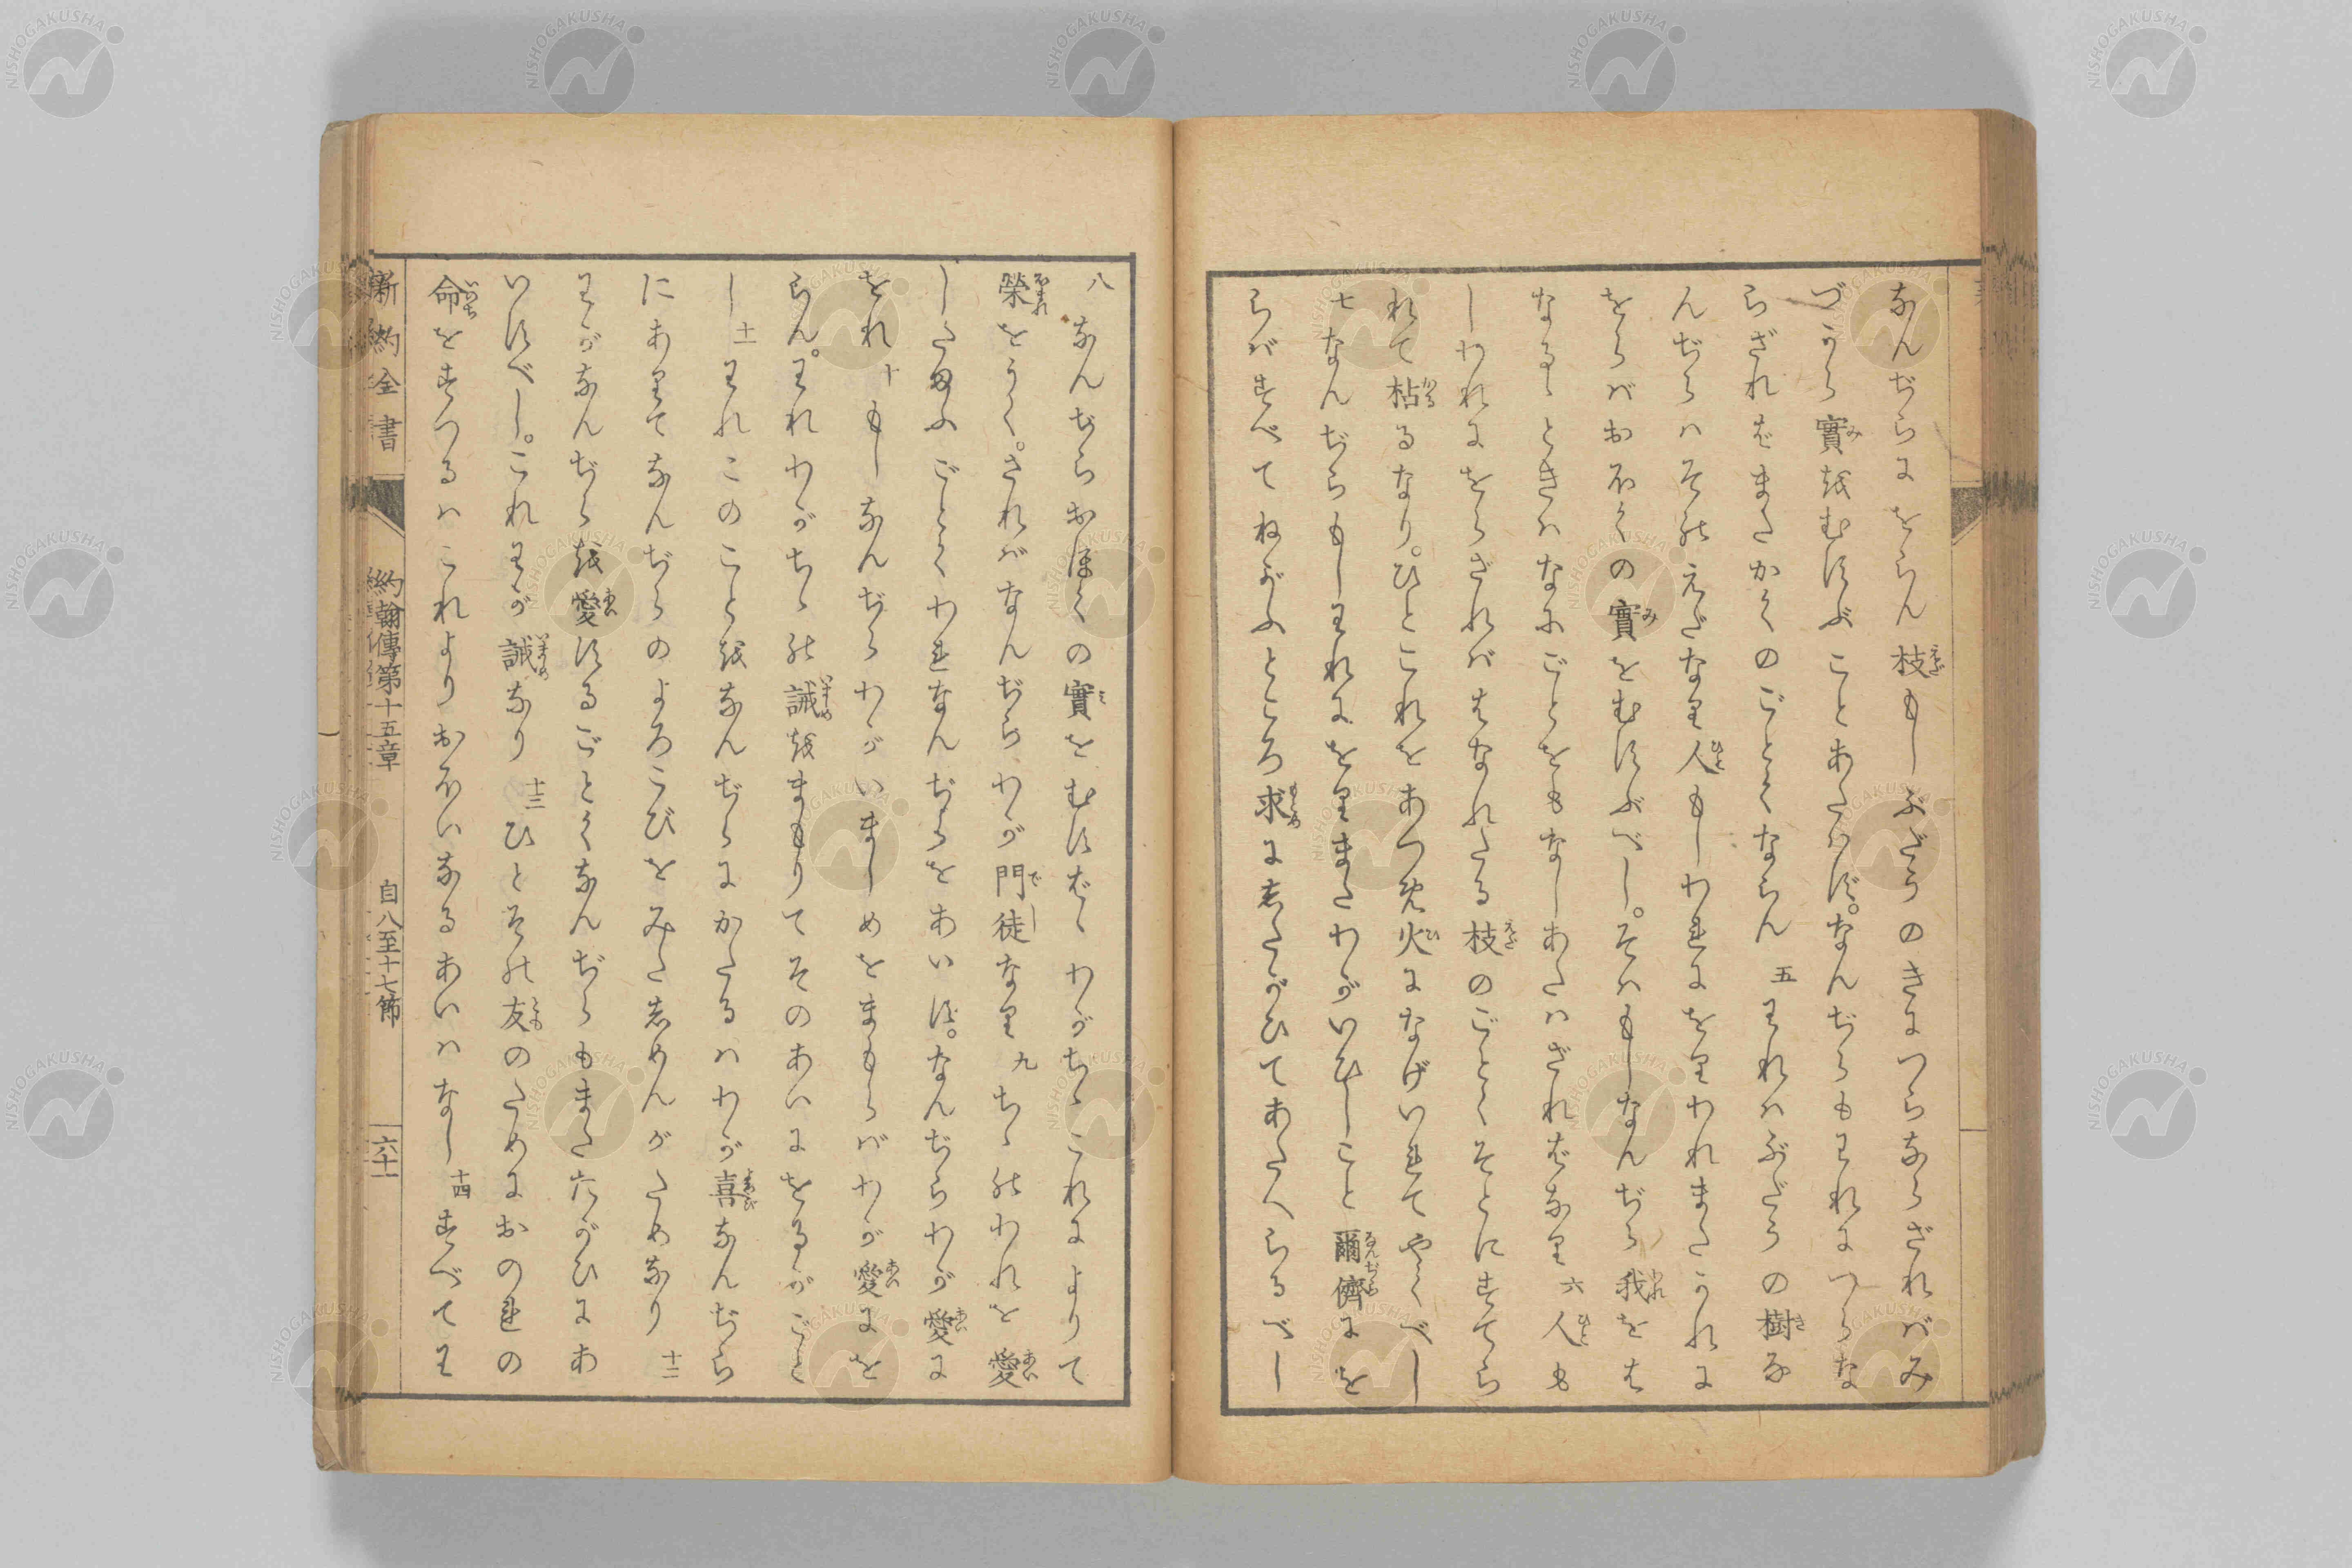 なんぢらにをらん枝もしぶだうのきにつらならざればみ
づから實をむすぶことあたはず。なんぢらもわれにつらな
らざればまたかくのごとくならん 五 われはぶだうの樹な
んぢらはその えだなり人もしわれにをりわれまたこれに
をらばおほくの實をむすぶべし。そはもしなんぢら我をは
なるゝときはなにごとをもなしあたはざればなり 六 人も
しわれにをらざればはなれたる枝のごとくそとにすてら
れて枯るなり。ひとこれをあつめ火になげいれてやくべし
七 なんぢらもしわれにをりまたわがいひしこと爾儕にを
らばすべてねがふところ求にしたがひてあたへらるべし
八 なんぢらおほくの實をむすばゝわがちゝこれによりて
榮をうく。さればなんぢらわが門徒なり 九 ちゝのわれを愛
したまふごとくわれなんぢらをあいす。なんぢらわが愛に
をれ 十 もしなんぢらわがいましめをまもらばわが愛にを
らん。われわがちゝの誡をまもりてそのあいにをるがごと
し 十一 われこのことをなんぢらにかたるはわが喜なんぢら
にありてなんぢらのよろこびをみたしめんがためなり 十二
わがなんぢらを愛するごとくなんぢらもまたたがひにあ
いすべし。これわが誡なり 十三 ひとその友のためにおのれの
命をすつるはこれよりおほいなるあいはなし 十四 すべてわ
新約全書 約翰傳第十五章 自八至十七節 六十一
NISHOGAKUSHA